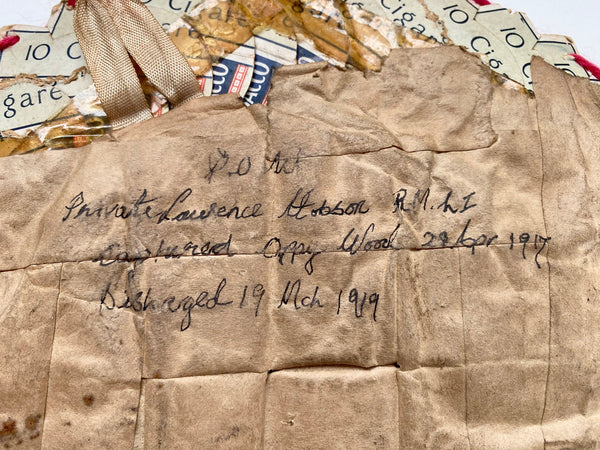 10 Cigare
10 Cig
10 Cigare
gare
10
P.O. Art
Private Lawrence Hobson R.M.L.I
Captured Oppy Wood 28 Apr 1917
Discharged 19 Mch 1919